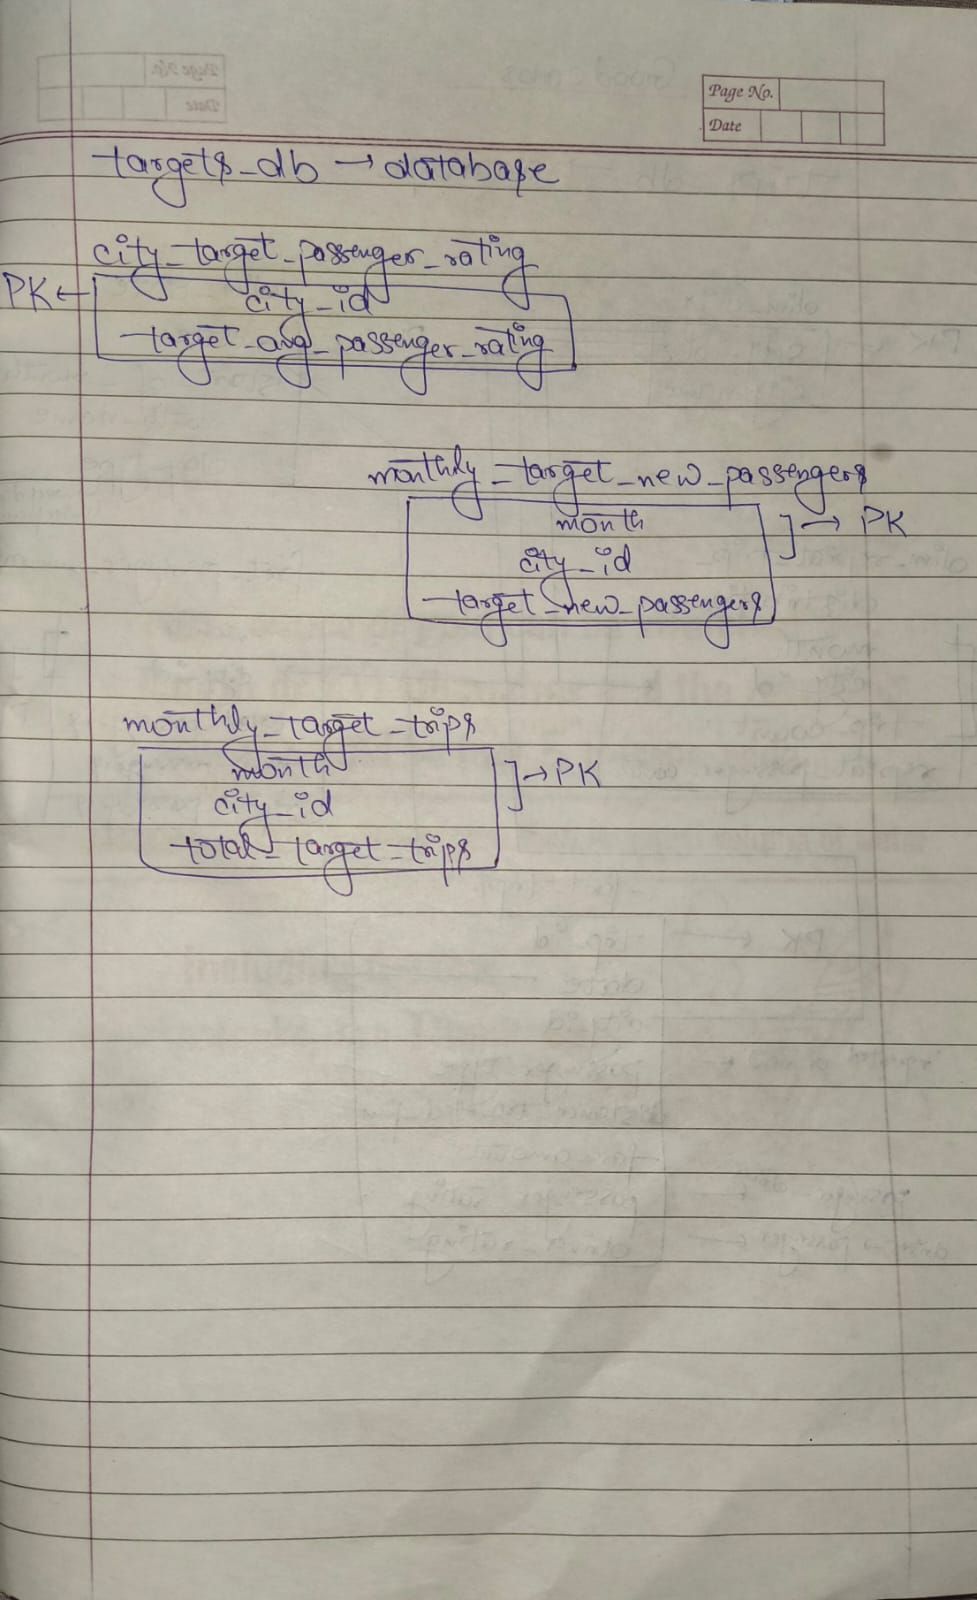 Page No.
Date
targets_db → database
city_target_passenger_rating
PK ← city_id
target_avg_passenger_rating
monthly_target_new_passengers
month
city_id
] → PK
target_new_passengers
monthly_target_trips
month
city_id
] → PK
total_target_trips